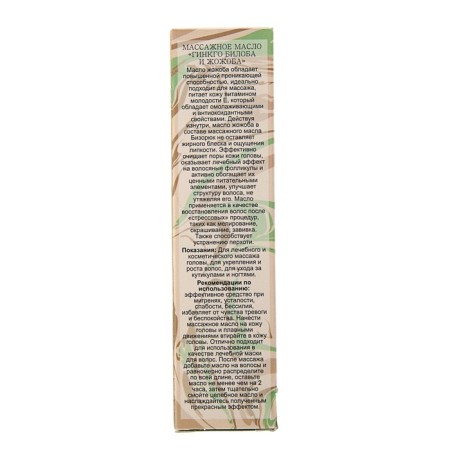 МАССАЖНОЕ МАСЛО
«ГИНКГО БИЛОБА
И ЖОЖОБА»
Масло жожоба обладает
повышенной проникающей
способностью, идеально
подходит для массажа,
питает кожу витамином
молодости Е, который
обладает омолаживающими
и антиоксидантными
свойствами. Действуя
изнутри, масло жожоба в
составе массажного масла
Бизорюк не оставляет
жирного блеска и ощущения
липкости. Эффективно
очищает поры кожи головы,
оказывает лечебный эффект
на волосяные фолликулы и
активно обогащает их
ценными питательными
элементами, улучшает
структуру волоса, не
утяжеляя его. Масло
применяется в качестве
восстановления волос после
«стрессовых» процедур,
таких как мелирование,
окрашивание, завивка.
Также способствует
устранению перхоти.
Показания: Для лечебного и
косметического массажа
головы, для укрепления и
роста волос, для ухода за
кутикулами и ногтями.
Рекомендации по
использованию:
эффективное средство при
мигренях, усталости,
слабости, бессилия,
избавляет от чувства тревоги
и беспокойства. Нанести
массажное масло на кожу
головы и плавными
движениями втирайте в кожу
головы. Отлично подходит
для использования в
качестве лечебной маски
для волос. После массажа
добавьте масло на волосы и
равномерно распределите
по всей длине, оставьте
масло не менее чем на 2
часа, затем тщательно
смойте целебное масло и
наслаждайтесь полученным
прекрасным эффектом.